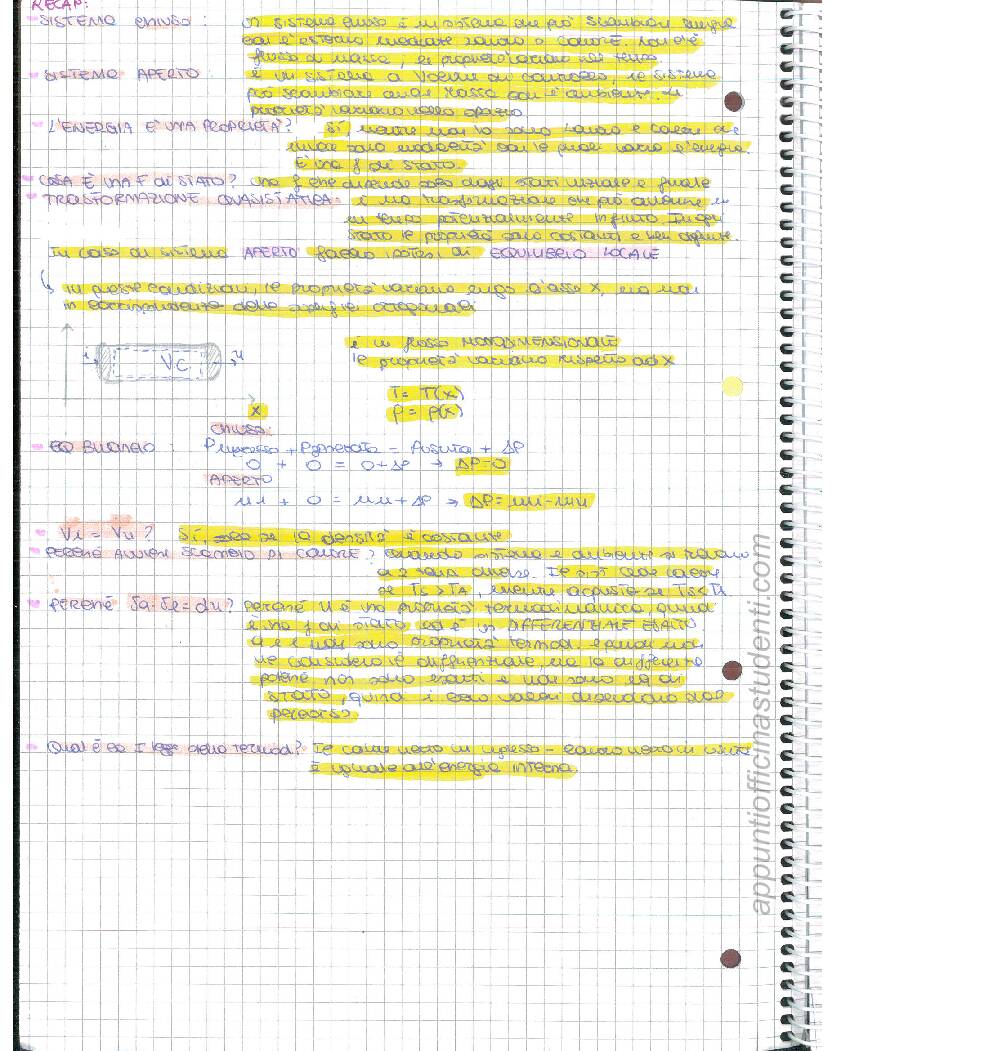 RECAP:
SISTEMA CHIUSO: Un sistema chiuso è un sistema che può scambiare energia
con l'esterno mediante lavoro o calore. Non c'è
flusso di massa, le proprietà variano nel tempo
SISTEMA APERTO: è un sistema a volume di controllo, il sistema
può scambiare anche massa con l'ambiente. Le
proprietà variano nello spazio
L'ENERGIA È UNA PROPRIETÀ? Sì mentre non lo sono lavoro e calore che
invece sono modalità con le quali varia l'energia.
È una f di stato.
COSA È UNA F DI STATO? Una f che dipende solo dagli stati iniziale e finale
TRASFORMAZIONE QUASISTATICA: è una trasformazione che può avvenire in
un tempo potenzialmente infinito. In ogni
stato le proprietà sono costanti e ben definite.
In caso di sistema APERTO faccio ipotesi di EQUILIBRIO LOCALE
in queste condizioni, le proprietà variano lungo l'asse x, ma non
in corrispondenza delle superfici ortogonali
è un flusso MONODIMENSIONALE
le proprietà variano rispetto ad x
i VC u
T = T(x)
ρ = ρ(x)
x
CHIUSO:
EQ BILANCIO: Pingresso + Pgenerata = Puscita + ΔP
0 + 0 = 0 + ΔP → ΔP=0
APERTO
mi + 0 = mu + ΔP → ΔP = mi - mu
Vi = Vu? Sì, solo se la densità è costante
PERCHÉ AVVIENE SCAMBIO DI CALORE? Quando sistema e ambiente si trovano
a 2 temp diverse. Il sist cede calore
se Ts > TA, mentre acquista se Ts ≤ TA.
PERCHÉ δq - δl = du? perché u è una proprietà termodinamica quindi
è una f di stato ed è un DIFFERENZIALE ESATTO
q e l non sono proprietà termod. e quindi non
ne considero il differenziale, ma la differenza
poiché non sono esatti e non sono f di
stato, quindi i loro valori dipendono dal
percorso
Qual è la I legge della termod? Il calore netto in ingresso - lavoro netto in uscita
è uguale all'energia interna.
appuntiofficinastudenti.com